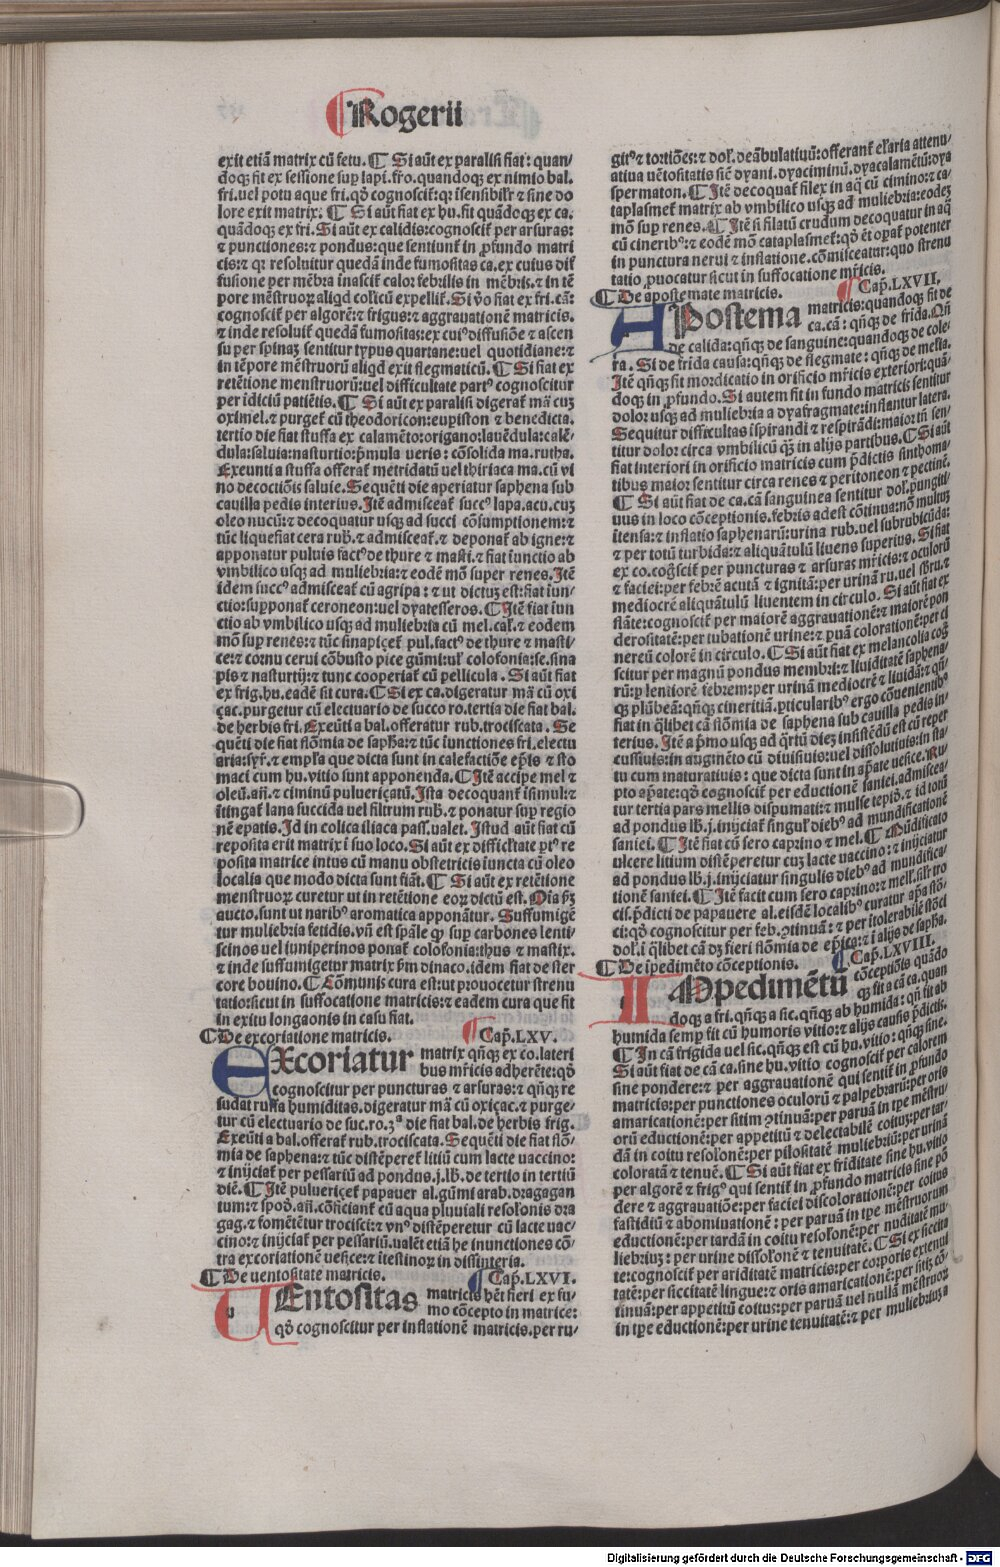 ¶Rogerii
exit etiã matrix cũ fetu. ¶ Si aũt ex paralisi fiat: quan/
doqꝫ fit ex sessione suꝑ lapi. fr̃o. quandoqꝫ ex nimio bal.
fri. uel potu aque fri. qð cognoscit̃: qꝛ ĩsensibilr̃ ⁊ sine do
lore exit matrix. ¶ Si aũt fiat ex hu. fit quãdoqꝫ ex ca.
quãdoqꝫ ex fri. Si aũt ex calidis: cognoscit̃ per arsuras:
⁊ punctiones: ⁊ pondus: que sentiunt̃ in ꝓfundo matri
cis: ⁊ qꝛ resoluitur quedã inde fumositas ca. ex cuius dif
fusione per mẽbra inascit̃ calor febrilis in mẽbris: ⁊ in tẽ
pore mẽstruoꝝ aliqd colicũ expellit̃. Si ṽo fiat ex fri. cã:
cognoscit̃ per algorẽ: ⁊ frigus: ⁊ aggrauationẽ matricis.
⁊ inde resoluit̃ quedã fumositas: ex cuiꝰ diffusiõe ⁊ ascen
su per spinaꝫ sentitur typus quartane: uel quotidiane: ⁊
in tẽpore mẽstruorũ aliqd exit flegmaticũ. ¶ Si fiat ex
retẽtione menstruorũ: uel difficultate partꝰ cognoscitur
per idiciũ patiẽtis. ¶ Si aũt ex paralisi digerat̃ mã cuꝫ
oximel. ⁊ purget̃ cũ theodoricon: eupiston ⁊ benedicta.
tertio die fiat stuffa ex calamẽto: origano: lauẽdula: calẽ/
dula: saluia: nasturtio: p̃mula ueris: cõsolida ma. rutha.
Exeunti a stuffa offerat̃ metridatũ uel thiriaca ma. cũ vi
no decoctiõis saluie. Sequẽti die aperiatur saphena sub
cauilla pedis interius. Itẽ admisceat̃ succꝰ lapa. acu. cuꝫ
oleo nucũ: ⁊ decoquatur usqꝫ ad succi cõsumptionem: ⁊
tũc liquefiat cera rub̃. ⁊ admisceat̃. ⁊ deponat̃ ab igne: ⁊
apponatur puluis factꝰ de thure ⁊ masti. ⁊ fiat ĩunctio ab
vmbilico usqꝫ ad muliebria: ⁊ eodẽ mõ super renes. Itẽ
idem succꝰ admisceat̃ cũ agripa: ⁊ ut dictuꝫ est: fiat ĩun/
ctio: suꝑponat̃ ceroneon: uel dyatesseros. ¶ Itẽ fiat ĩun
ctio ab vmbilico usqꝫ ad muliebria cũ mel. cal̃. ⁊ eodem
mõ suꝑ renes: ⁊ tũc sinapiçet̃ pul. factꝰ de thure ⁊ masti/
ce: ⁊ cornu cerui cõbusto pice gũmi: ul̃ colofonia: se. sina
pis ⁊ nasturtij: ⁊ tunc cooperiat̃ cũ pellicula. Si aũt fiat
ex frig. hu. eadẽ sit cura. ¶ Si ex ca. digeratur mã cũ oxi
çac. purgetur cũ electuario de succo ro. tertia die fiat bal.
de herbis fri. Exeũti a bal. offeratur rub. trociscata. Se
quẽti die fiat flõmia de saph̃a: ⁊ tũc ĩunctiones fri. electu
aria: syr̃. ⁊ empl̃a que dicta sunt in calefactiõe ep̃is ⁊ sto
maci cum hu. vitio sunt apponenda. ¶ Itẽ accipe mel ⁊
oleũ. añ. ⁊ ciminũ puluericatũ. Ista decoquant̃ ĩsimul: ⁊
ĩtingat̃ lana succida uel filtrum rub̃. ⁊ ponatur suꝑ regio
nẽ epatis. Id in colica iliaca pass. ualet. Istud aũt fiat cũ
reposita erit matrix ĩ suo loco. Si aũt ex difficl̃tate ptꝰ re
posita matrice intus cũ manu obstetricis iuncta cũ oleo
localia que modo dicta sunt fiãt. ¶ Si aũt ex retẽtione
menstruoꝝ curetur ut in retẽtione eoꝝ dictũ est. Dia p̃ꝫ
aucto. sunt ut naribꝰ aromatica apponãtur. Suffumigẽ
tur muliebria fetidis. vñ est sp̃ale ꝙ suꝑ carbones lenti/
scinos uel iuniperinos ponat̃ colofonia: thus ⁊ mastix.
⁊ inde suffumigetur matrix p̃m dinaco. idem fiat de ster
core bouino. ¶ Cõmunis cura est: ut prouocetur strenu
tatio: sicut in suffocatione matricis: ⁊ eadem cura que fit
in exitu longaonis in casu fiat.
¶ De excoriatione matricis. ¶ Cap̃. LXV.
eXcoriatur matrix qñqꝫ ex co. lateri
bus mr̃icis adherẽte: qð
cognoscitur per puncturas ⁊ arsuras: ⁊ qñqꝫ re
sudat ruffa humiditas. digeratur mã cũ oxiçac. ⁊ purge/
tur cũ electuario de suc. ro. 3ª die fiat bal. de herbis frig.
Exeũti a bal. offerat̃ rub. trociscata. Sequẽti die fiat flõ/
mia de saphena: ⁊ tũc distẽperet̃ litiũ cum lacte uaccino:
⁊ inijciat̃ per pessariũ ad pondus. j. lb̃. de tertio in tertiũ
diẽ. ¶ Itẽ puluericet̃ papauer al. gũmi arab. dragagan
tum: ⁊ spoð. añ. cõficiant̃ cũ aqua pluuiali resol̃onis dra
gag. ⁊ fomẽtẽtur trocisci: ⁊ vnꝰ distẽperetur cũ lacte uac/
cino: ⁊ inijciat̃ per pessariũ. ualẽt etiã he inunctiones cõ/
tra excoriationẽ uesice: ⁊ ĩtestinoꝝ in dissinteria.
¶ De uentositate matricis. ¶ Cap̃. LXVI.
uEntositas matricis hẽt fieri ex fu/
mo cõcepto in matrice:
qð cognoscitur per inflationẽ matricis. per ru/
gitꝰ ⁊ tortiões: ⁊ dol̃. deãbulatiuũ: offerant̃ el̃aria attenu/
atiua uẽtositatis sic̃ dyani. dyaciminũ. dyacalamẽtũ: dya
spermaton. ¶ Itẽ decoquat̃ filex in aq̃ cũ cimino: ⁊ ca/
taplasmet̃ matrix ab vmbilico usqꝫ ad muliebria: eodeꝫ
mõ suꝑ renes. ¶ Itẽ si filatũ crudum decoquatur in aq̃
cũ cineribꝰ: ⁊ eodẽ mõ cataplasmet̃: qð ẽt oꝑat̃ potenter
in punctura nerui ⁊ inflatione. cõmisceatur: quo strenu
tatio ꝓuocatur sicut in suffocatione mr̃icis.
¶ De apostemate matricis. ¶ Cap̃. LXVII.
APostema matricis: quandoqꝫ fit de
ca. cã: qñqꝫ de frida. Qñ
de calida: qñqꝫ de sanguine: quandoqꝫ de cole/
ra. Si de frida causa: qñqꝫ de flegmate: qñqꝫ de mela.
Itẽ qñqꝫ fit mordicatio in orificio mr̃icis exteriori: quã/
doqꝫ in ꝓfundo. Si autem fit in fundo matricis sentitur
dolor usqꝫ ad muliebria a dyafragmate: inflantur latera.
Sequitur difficultas ĩspirandi ⁊ respirãdi: maior tñ sen/
titur dolor circa vmbilicũ qꝫ̃ in alijs partibus. ¶ Si aũt
fiat interiori in orificio matricis cum p̃dictis sinthoma/
tibus maior sentitur circa renes ⁊ peritoneon ⁊ pectinẽ.
¶ Si aũt fiat de ca. cã sanguinea sentitur dol. pungiti/
uus in loco cõceptionis. febris adest cõtinua: nõ multuꝫ
ĩtensa: ⁊ inflatio saphenarũ: urina rub. uel subrubicũda:
⁊ per totũ turbida: ⁊ aliquãtulũ liuens superius. Si fiat
ex co. cog̃scit̃ per puncturas ⁊ arsuras mr̃icis: ⁊ oculorũ
⁊ faciei: per febrẽ acutã ⁊ ignitã: per urinã ru. uel sb̃ru. ⁊
mediocrẽ aliquãtulũ liuentem in circulo. Si aũt fiat ex
flãte: cognoscit̃ per maiorẽ aggrauationẽ: ⁊ maiorẽ pon
derositatẽ: per tubationẽ urine: ⁊ ꝑuã colorationẽ: per ci
nereũ colorẽ in circulo. ¶ Si aũt fiat ex melancolia cog̃
scitur per magnũ pondus membri: ⁊ liuiditatẽ saphena/
rũ: ꝑ lentiorẽ febrem: per urinã mediocrẽ ⁊ liuidã: ⁊ qñ/
qꝫ plũbeã: qñqꝫ cineritiã. ꝑticularibꝰ ergo cõuenientibꝰ
fiat in q̃libet cã flõmia de saphena sub cauilla pedis in/
terius. Itẽ a p̃mo usqꝫ ad q̃rtũ dieꝫ insistẽdũ est cũ reper
cussiuis: in augmẽto cũ diuisiuis: uel dissolutiuis: in sta/
tu cum maturatiuis: que dicta sunt in ap̃ate uesice. Ru/
pto ap̃ate: qð cognoscit̃ per eductionẽ saniei. admiscea/
tur tertia pars mellis dispumati: ⁊ mulse tepid̃. ⁊ id totũ
ad pondus lb̃. j. inijciat̃ singul̃ diebꝰ ad mundificationẽ
saniei. ¶ Itẽ fiat cũ sero caprino ⁊ mel. ¶ Mũdificato
ulcere litium distẽperetur cuꝫ lacte uaccino: ⁊ inijciatur
ad pondus lb̃. j. inijciatur singulis diebꝰ ad mundifica/
tionẽ saniei. ¶ Itẽ facit cum sero caprino: ⁊ mell̃. sil̃r tro
cis. p̃dicti de papauere al. eisdẽ localibꝰ curatur ap̃a stõ/
ci: qð cognoscitur per feb. ꝯtinuã: ⁊ per ĩtolerabilẽ stõci
dol. ĩ q̃libet cã dꝫ fieri flõmia de ep̃ica: ⁊ ĩ alijs de sapha.
¶ De ĩpedimẽto cõceptionis. ¶ Cap̃. LXVIII.
IMpedimẽtũ cõceptiõis quãdo
qꝫ fit a cã ca. quan
doqꝫ a fri. qñqꝫ a sic. qñqꝫ ab humida: qñ fit ab
humida semꝑ fit cũ humoris vitio: ⁊ alijs causis p̃dictis.
¶ In cã frigida uel sic. qñqꝫ est cũ hu. vitio: qñqꝫ sine.
Si aũt fiat de cã ca. sine hu. vitio cognoscit̃ per calorem
sine pondere: ⁊ per aggrauationẽ qui sentit̃ in ꝓfundo
matricis: per punctiones oculorũ ⁊ palpebrarũ: per oris
amaricationẽ: per sitim ꝯtinuã: per paruã in tp̃e mẽstru/
orũ eductionẽ: per appetitũ ⁊ delectabilẽ coitus: per tar/
dã in coitu resol̃onẽ: per pilositatẽ muliebriũ: per urinã
coloratã ⁊ tenuẽ. ¶ Si aũt fiat ex friditate sine hu. vitio
per algorẽ ⁊ frigꝰ qui sentit̃ in ꝓfundo matricis sine põ
dere ⁊ aggrauatiõe: per faciei discolorationẽ: per coitus
fastidiũ ⁊ abominationẽ: per paruã in tp̃e mẽstruorum
eductionẽ: per tardã in coitu resol̃onẽ: per nuditatẽ mu/
liebriuꝫ: per urine dissol̃onẽ ⁊ tenuitatẽ. ¶ Si ex siccita
te: cognoscit̃ per ariditatẽ matricis: per corporis extenui
tatẽ: per siccitatẽ lingue: ⁊ oris amaricationẽ: per sitiꝫ cõ/
tinuãꝫ: per appetitũ coitus: per paruã uel nullã mẽstruoꝝ
in tp̃e eductionẽ: per urine tenuitatẽ: ⁊ per muliebriuꝫ a
Digitalisierung gefördert durch die Deutsche Forschungsgemeinschaft - DFG